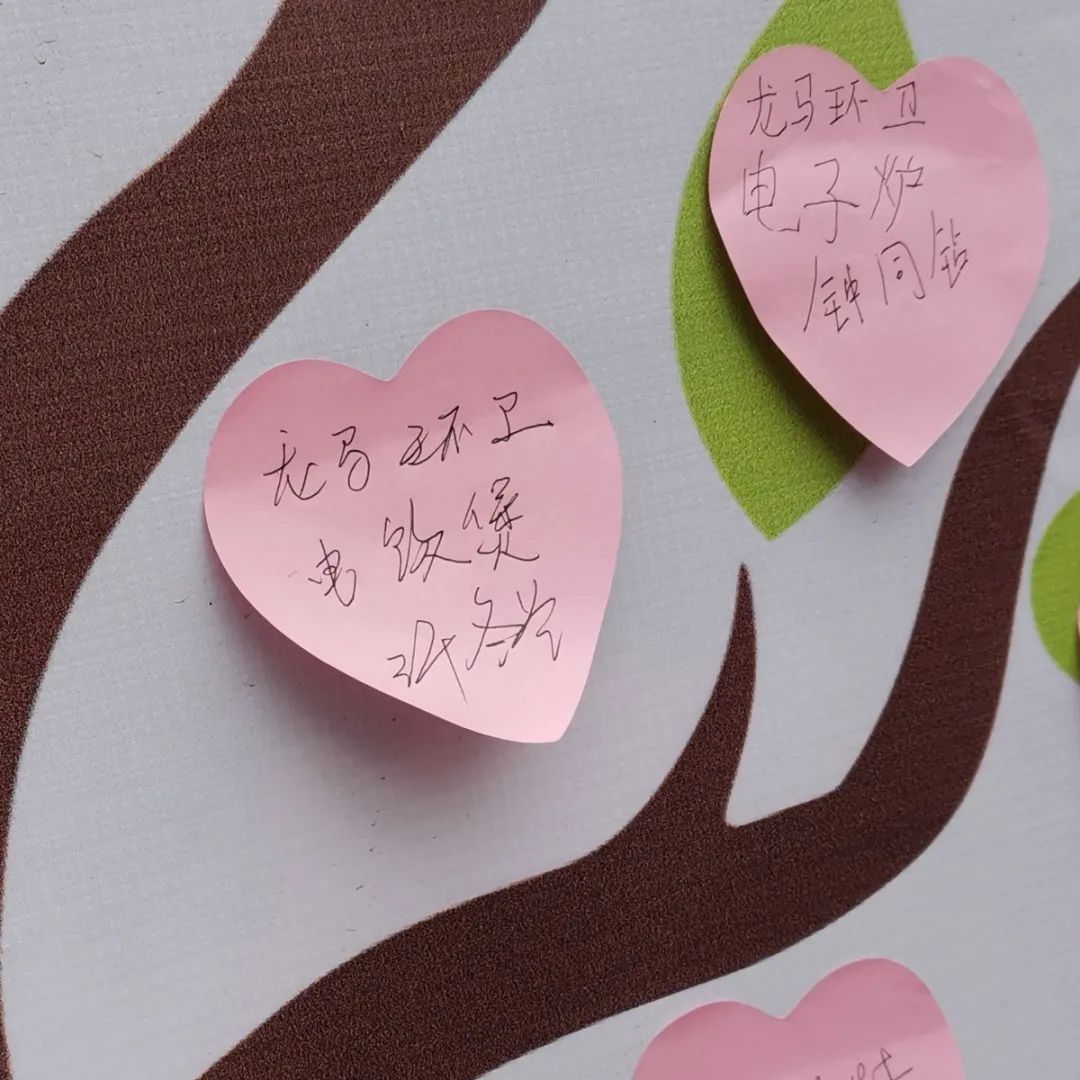 龙马环卫
电饭煲
龙马环卫
电子炉
钟同钻